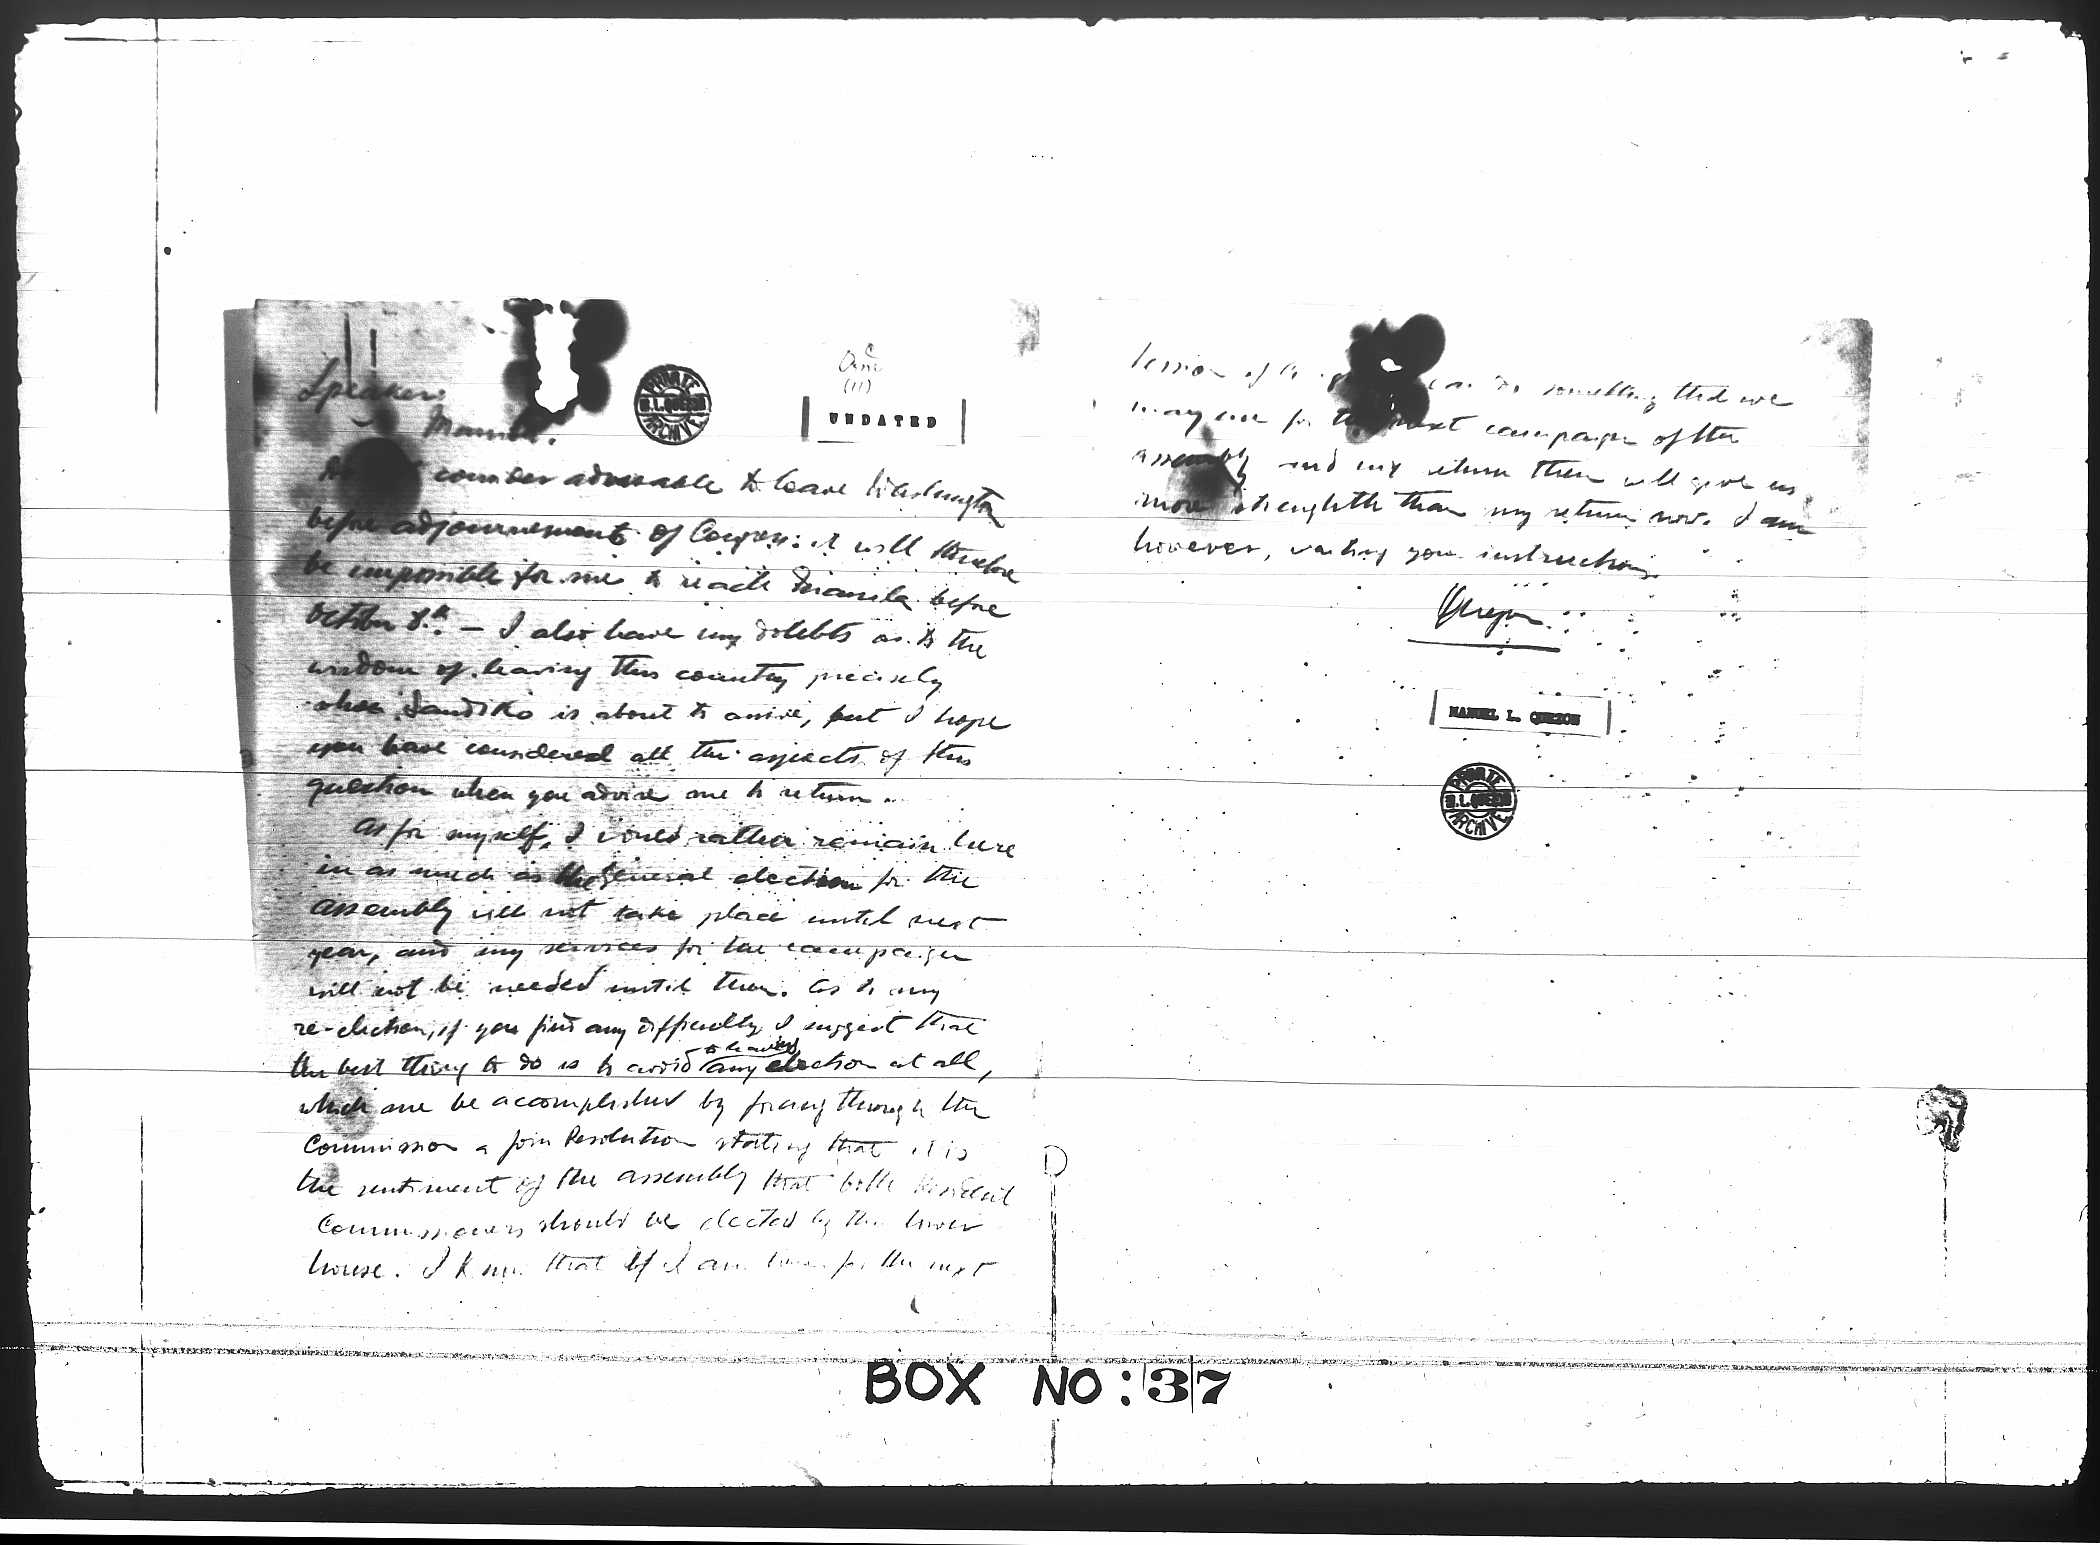 Speaker:
Manila.
PRIVATE
M.L. QUEZON
ARCHIVE
(11)
UNDATED
consider adviseable to leave Washington
before adjournement of Congress: it will therefore
be impossible for me to reach Manila before
October 8th. — I also have my doubts as to the
wisdom of leaving this country precisely
when is about to arrive, but I hope
you have considered all the aspects of this
question when you advise me to return.
As for myself, I would rather remain here
in as much as the general election for the
assembly will not take place until next
year, and my services for the campaign
will not be needed until then. As to my
re-election, if you find any difficulty I suggest that
the best thing to do is to avoid to having any election at all,
which be accomplished by forcing through the
Commission a join Resolution stating that it is
the sentiment of the assembly that both Resident
Commissioners should be elected by the lower
house. I know that if I am here for the next
session of do something that we
may use for the next campaign of the
assembly and my return then will give us
more strenghth than my return now. I am
however, waiting your instructions.
Quezon.
MANUEL L. QUEZON
PRIVATE
M.L. QUEZON
ARCHIVE
BOX NO: 37